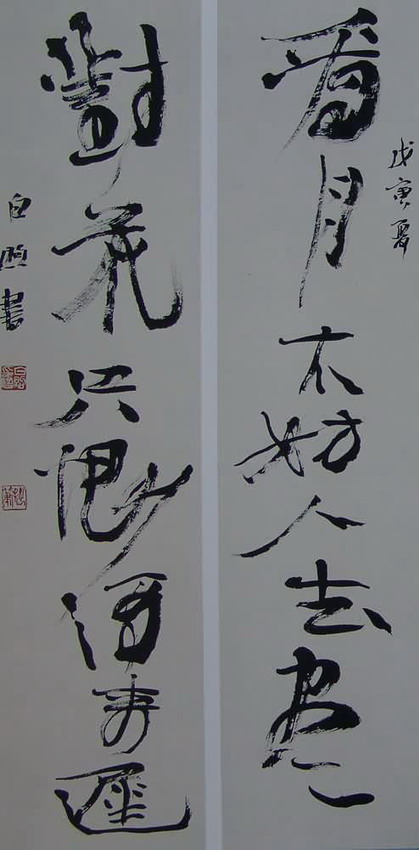 戊寅夏
看月不妨人去盡
對花只酒來遲
白煦書